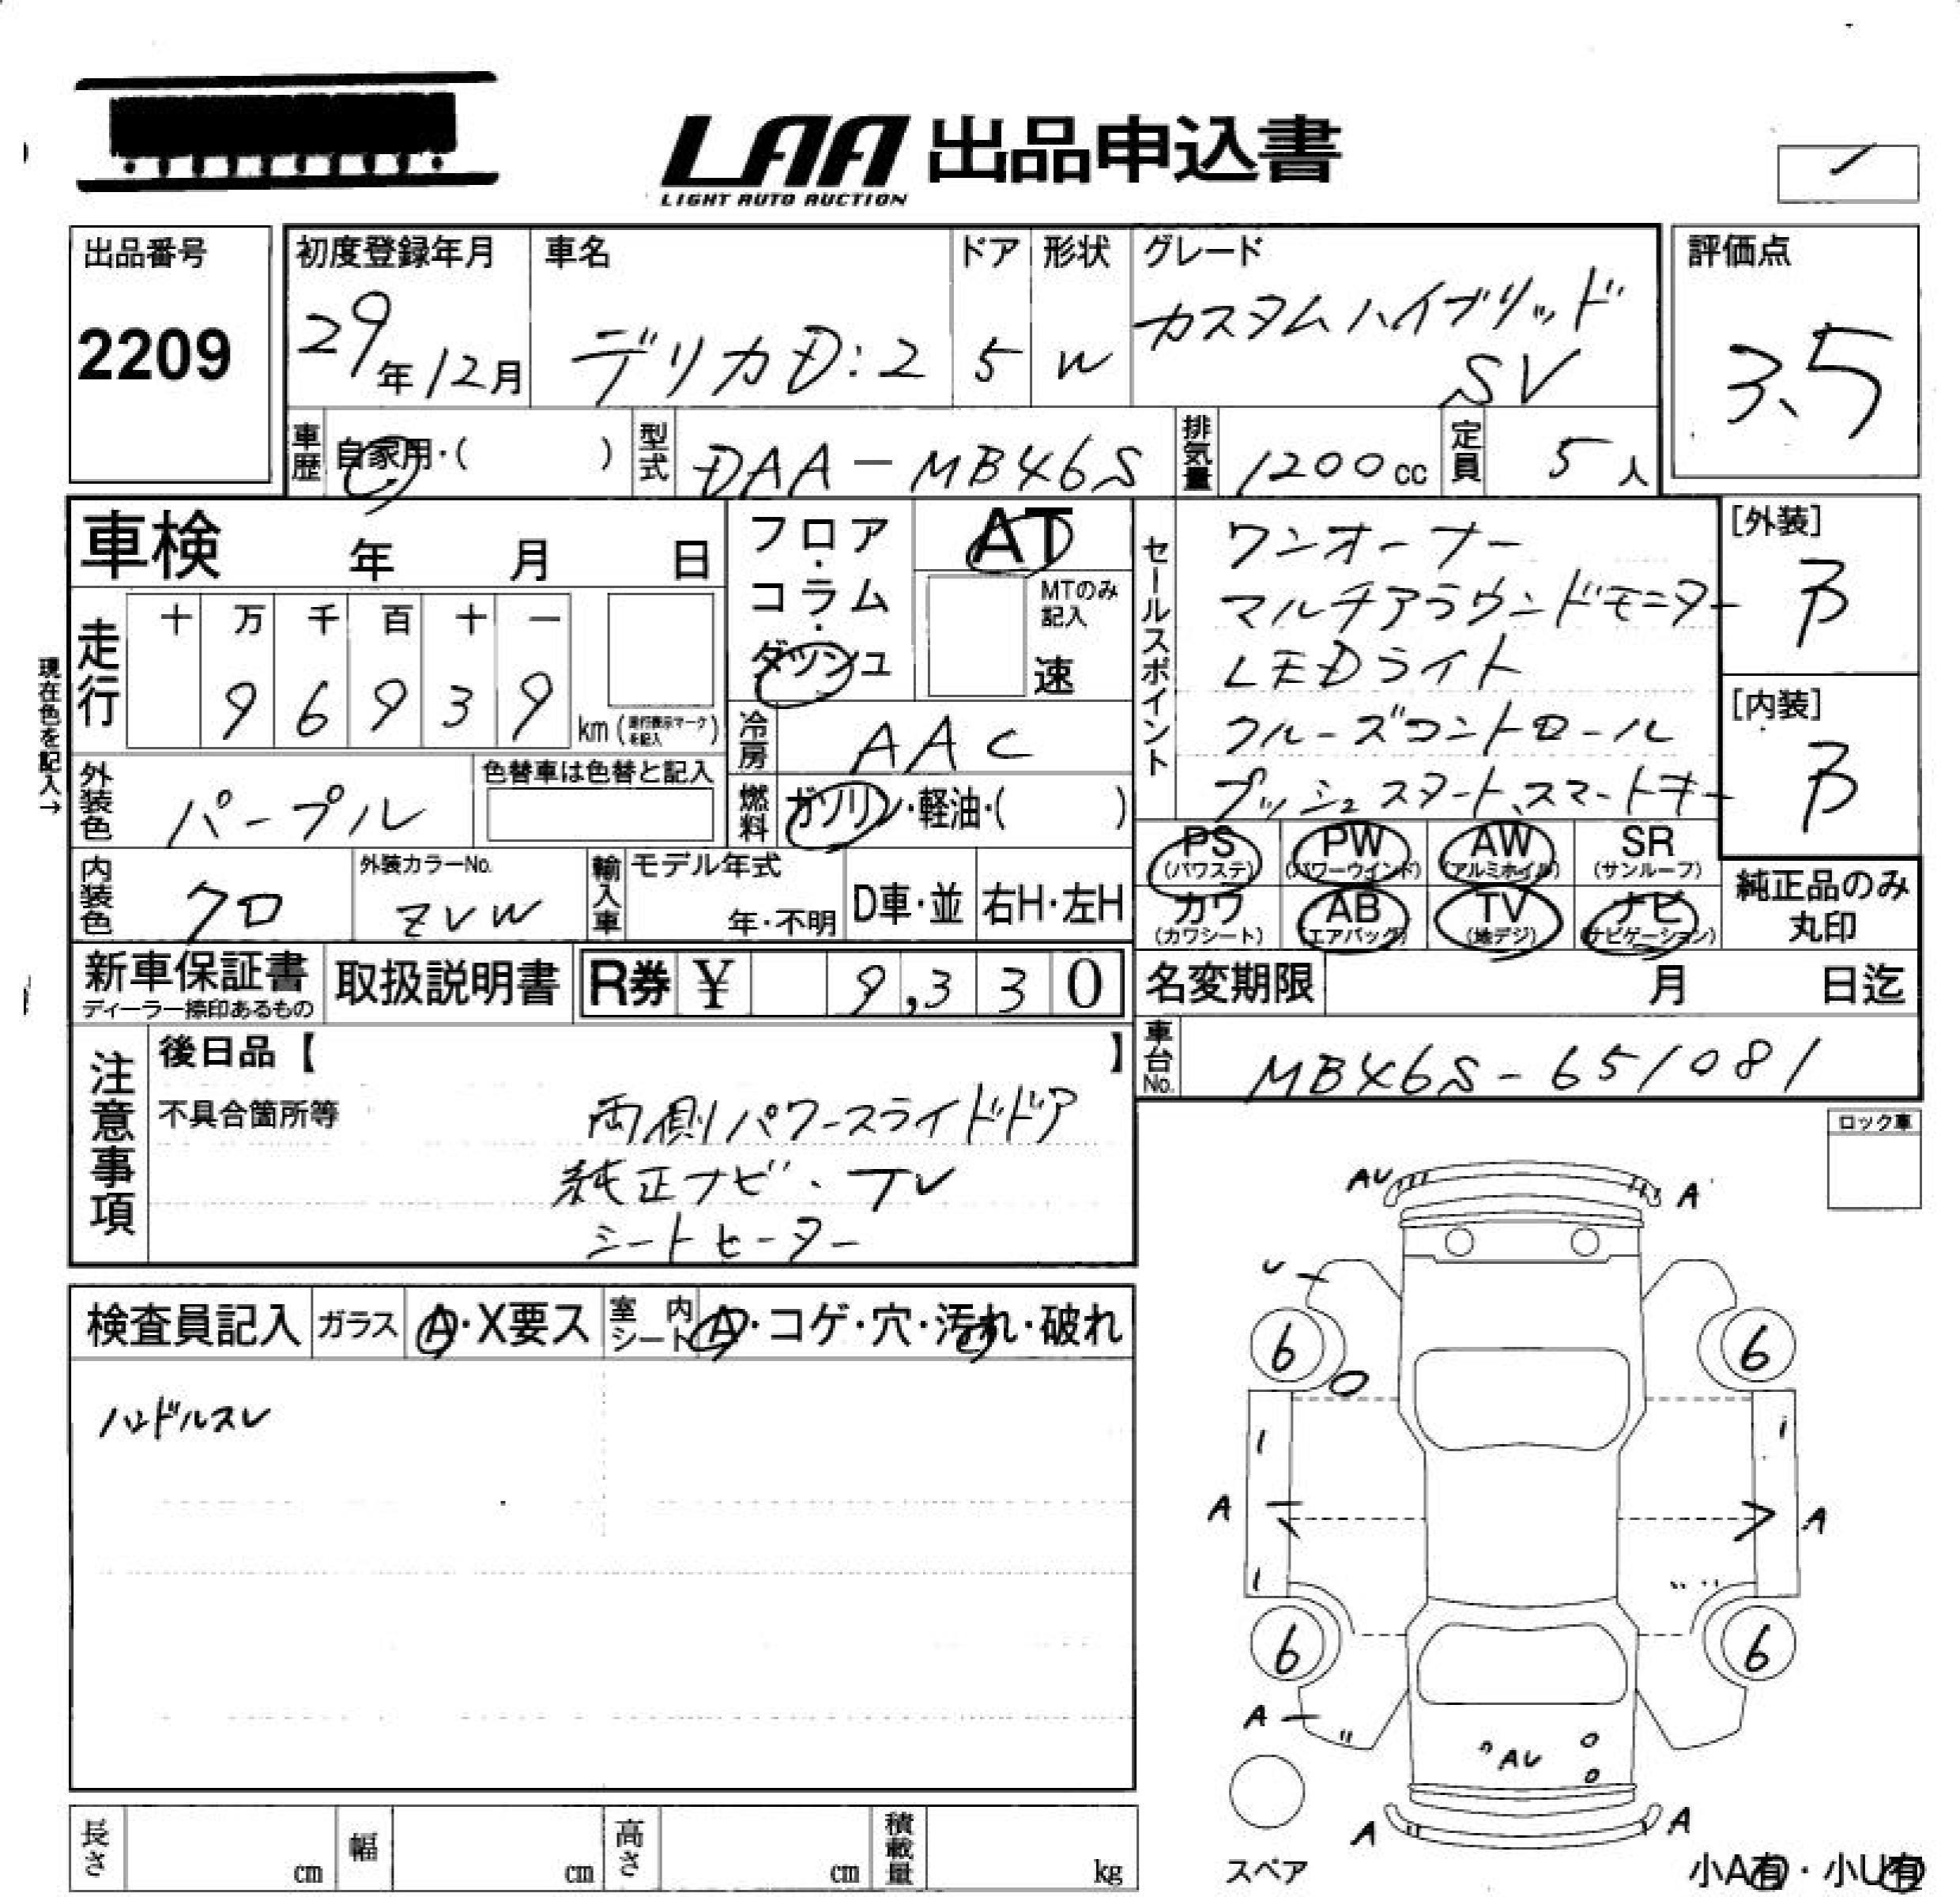 LAA 出品申込書
LIGHT AUTO AUCTION
出品番号
2209
初度登録年月
29年12月
車名
デリカD:2
ドア
5
形状
W
グレード
カスタムハイブリッド
SV
評価点
3.5
車歴 自家用・( )
型式 DAA-MB46S
排気量 1200cc
定員 5人
車検 年 月 日
フロア・コラム・ダッシュ
AT
MTのみ記入
速
セールスポイント
ワンオーナー
マルチアラウンドモニター
LEDライト
クルーズコントロール
プッシュスタート、スマートキー
[外装]
B
[内装]
B
現在色を記入→
走行
十 万 千 百 十 一
9 6 9 3 9
km (走行表示マークを記入)
冷房 AAC
外装色 パープル
色替車は色替と記入
燃料 ガソリン・軽油・( )
PS (パワステ) PW (パワーウインド) AW (アルミホイル) SR (サンルーフ)
カワ (カワシート) AB (エアバッグ) TV (地デジ) ナビ (ナビゲーション)
純正品のみ
丸印
内装色 クロ
外装カラーNo.
ZVW
輸入車
モデル年式
年・不明
D車・並
右H・左H
新車保証書
ディーラー捺印あるもの
取扱説明書
R券 ¥ 9,330
名変期限 月 日迄
車台No. MB46S-651081
注意事項
後日品【 】
不具合箇所等
両側パワースライドドア
純正ナビ・TV
シートヒーター
ロック車
検査員記入 ガラス A・X要ス 室内シート A・コゲ・穴・汚れ・破れ
ハンドルスレ
AU A
U
6 6
A A
6 6
A
AU
A A
スペア
小A有・小U有
長さ cm 幅 cm 高さ cm 積載量 kg